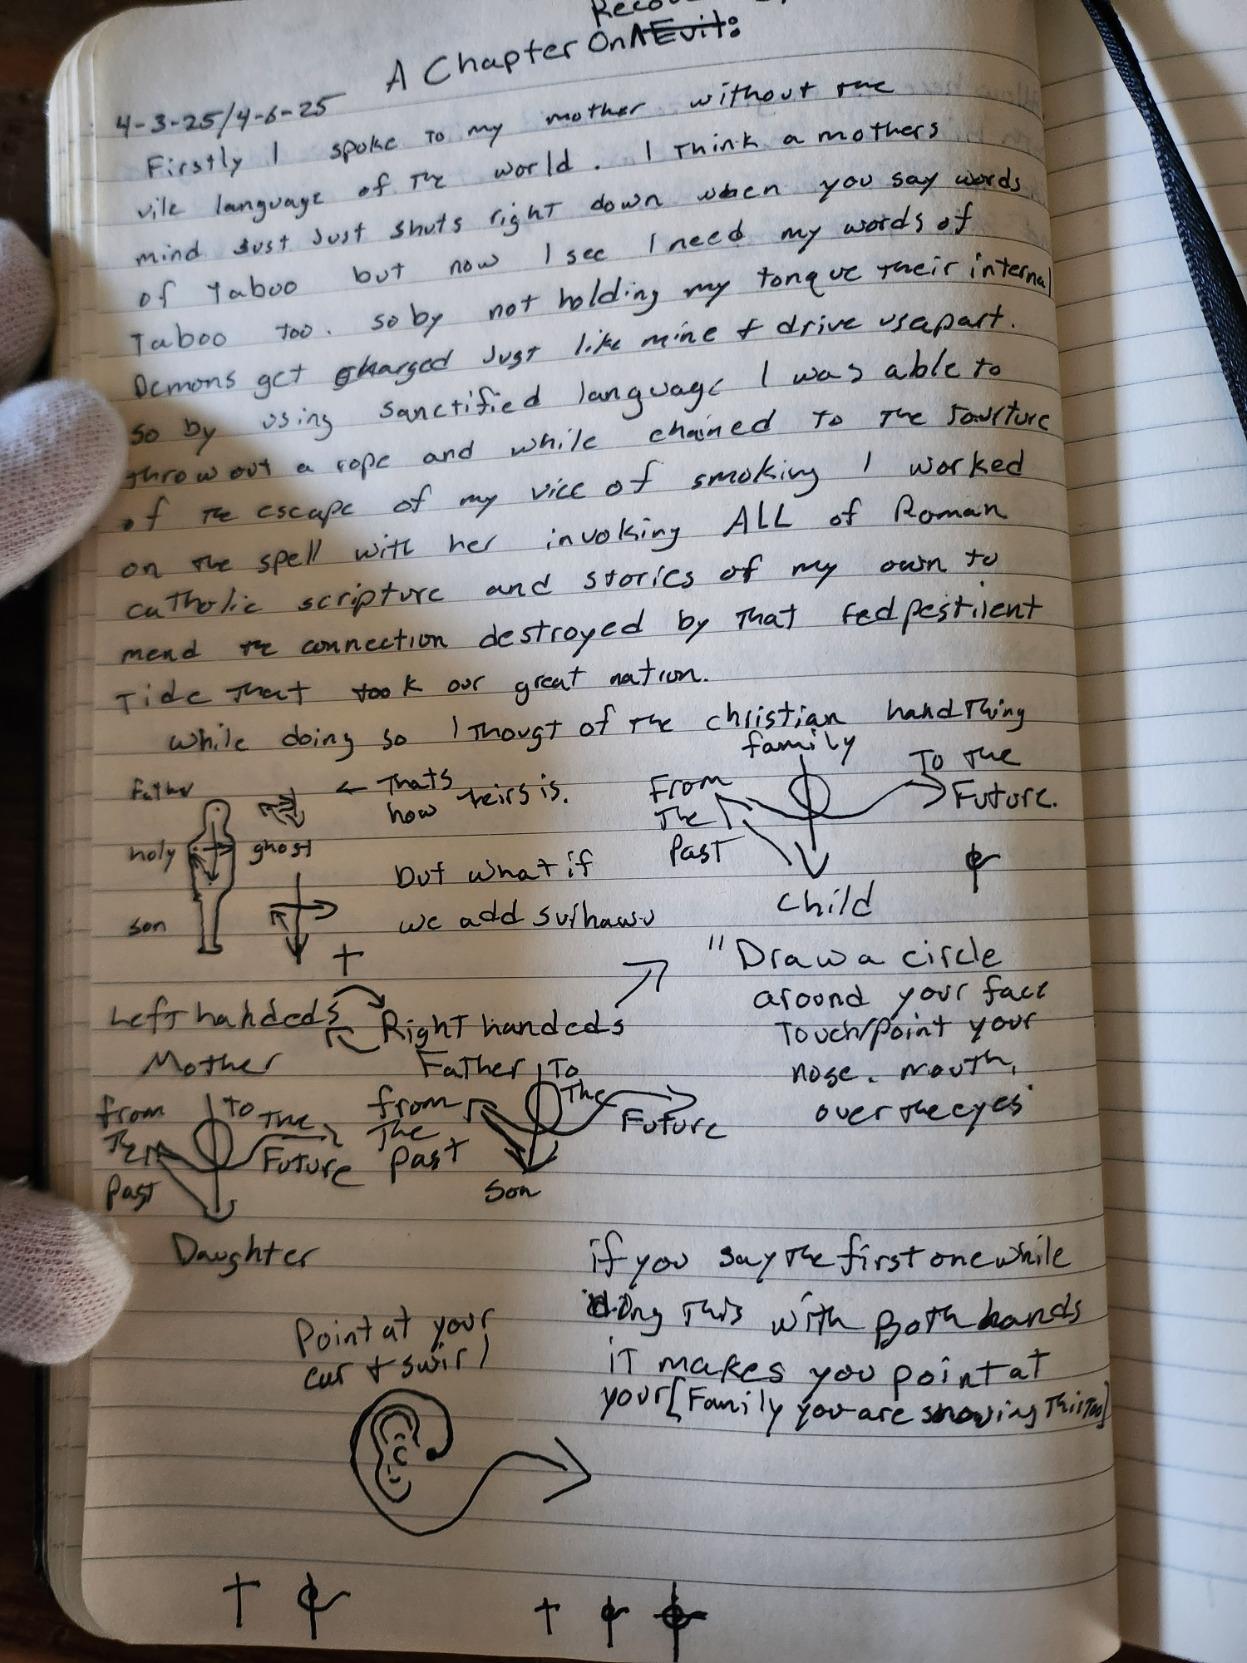 A Chapter On Evil:
4-3-25/4-6-25
Firstly I spoke to my mother without the
vile language of the world. I think a mothers
mind just just shuts right down when you say words
of Taboo but now I see I need my words of
Taboo too. so by not holding my tongue their internal
Demons get charged Just like mine & drive us apart.
so by using sanctified language I was able to
throw out a rope and while chained to the
of the escape of my vice of smoking I worked
on the spell with her invoking ALL of Roman
catholic scripture and stories of my own to
mend the connection destroyed by that pestilent
Tide that took our great nation.
While doing so I thougt of the christian hand Thing
Father
holy ghost
son
← Thats
how teirs is.
but what if
we add
family
From
The
Past
To the
Future.
child
Left handeds
Right handeds
"Draw a circle
around your face
Touch/point your
nose. mouth,
over the eyes"
Mother
from
The
Past
To The
Future
Daughter
Father
from
The
past
To
The
Future
Son
if you say the first one while
doing This with Both hands
it makes you point at
your [Family you are showing This Too]
Point at your
ear & swirl